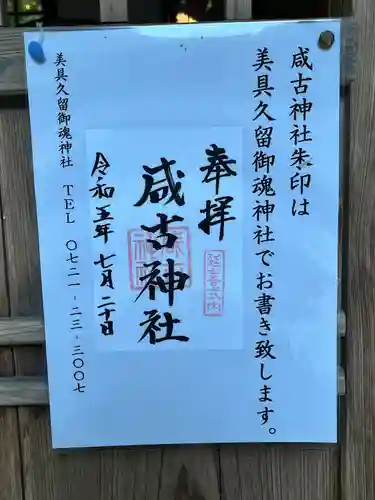 咸古神社朱印は
美具久留御魂神社でお書き致します。
奉拝
咸古神社
令和五年 七月二十日
美具久留御魂神社 TEL 〇七二一-二三-三〇〇七